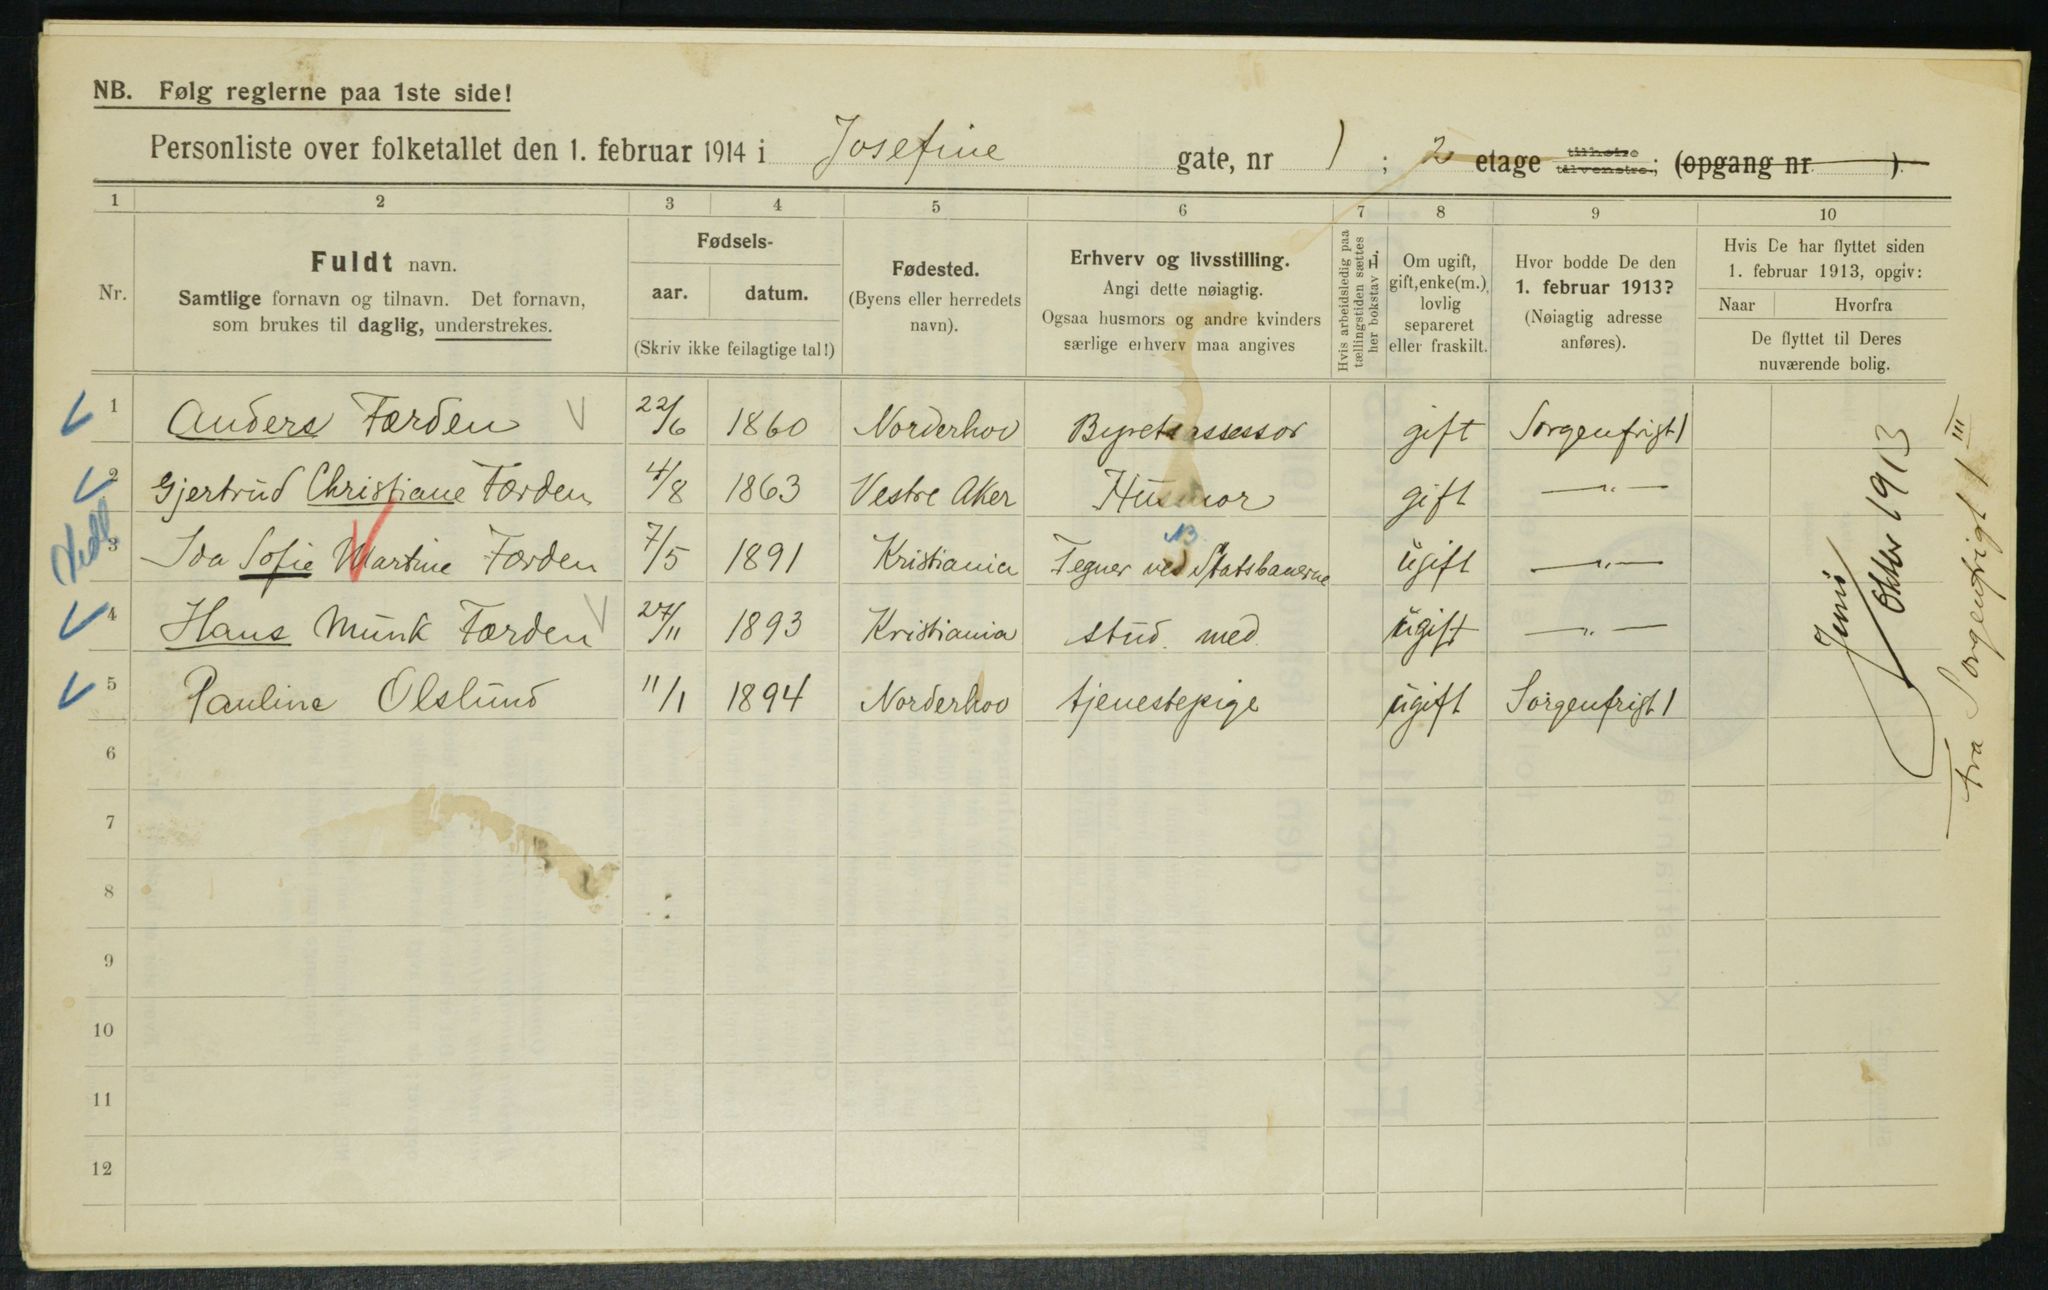 NB. Følg reglerne paa 1ste side!
Personliste over folketallet den 1. februar 1914 i Josefine gate, nr 1; 2 etage tilhøire tilvenstre; (opgang nr )
1 2 3 4 5 6 7 8 9 10
Nr.
Fuldt navn.
Samtlige fornavn og tilnavn. Det fornavn,
som brukes til daglig, understrekes.
Fødsels-
aar. datum.
(Skriv ikke feilagtige tal!)
Fødested.
(Byens eller herredets
navn).
Erhverv og livsstilling.
Angi dette nøiagtig.
Ogsaa husmors og andre kvinders
særlige erhverv maa angives
Hvis arbeidsledig paa
tællingstiden sættes
her bokstav
Om ugift,
gift, enke(m.),
lovlig
separeret
eller fraskilt.
Hvor bodde De den
1. februar 1913?
(Nøiagtig adresse
anføres).
Hvis De har flyttet siden
1. februar 1913, opgiv:
Naar Hvorfra
De flyttet til Deres
nuværende bolig.
1 Anders Færden 22/6 1860 Norderhov Byretsassessor gift Sorgenfrigt 1
2 Gjertrud Christiane Færden 4/8 1863 Vestre Aker Husmor gift —"—
3 Ida Sofie Martine Færden 7/5 1891 Kristiania Tegner ved Statsbanerne ugift —"—
4 Hans Munk Færden 27/11 1893 Kristiania stud. med. ugift —"—
5 Pauline Olslund 11/1 1894 Norderhov tjenestepige ugift Sorgenfrigt 1
6
7
8
9
10
11
12
1913
fra Sorgenfrigt 1 III